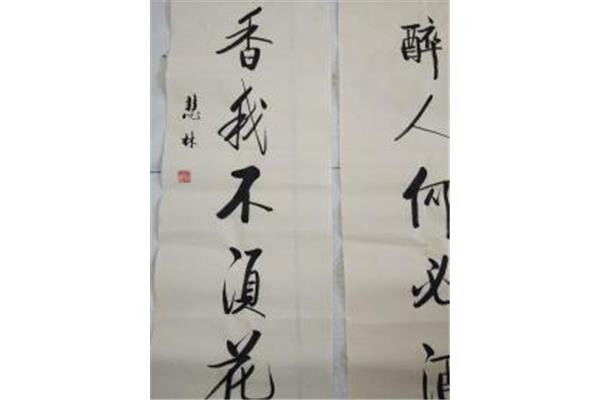 醉人何必酒
香我不須花
慧林